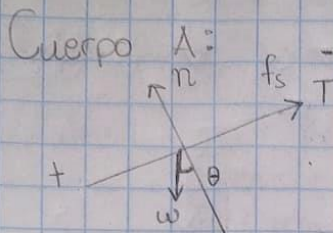 Cuerpo A:
n
fs
T
+
θ
w